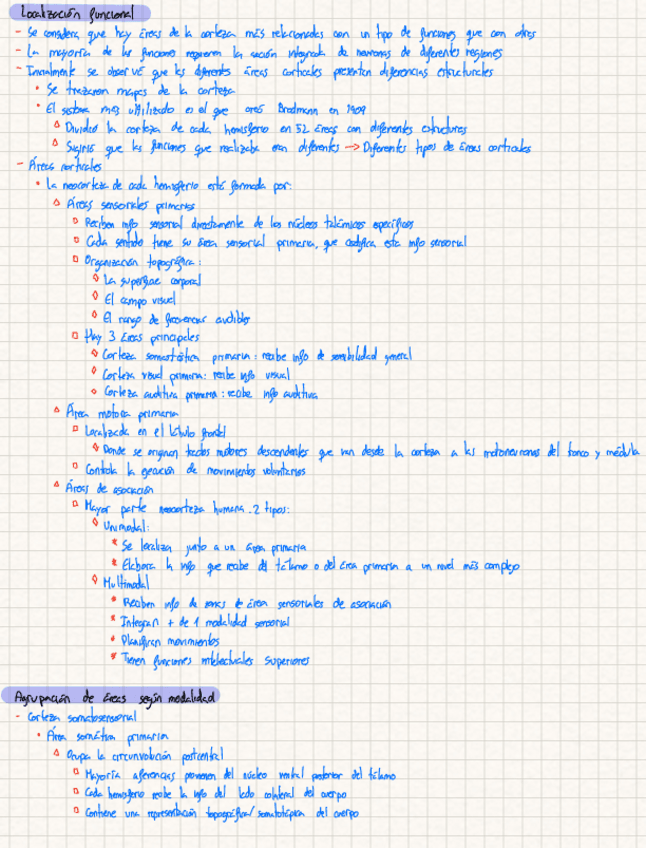 Localización funcional
- Se considera que hay áreas de la corteza más relacionadas con un tipo de funciones que con otras
- La mayoría de las funciones requieren la acción integrada de neuronas de diferentes regiones
- Inicialmente se observó que las diferentes áreas corticales presentan diferencias estructurales
• Se trazaron mapas de la corteza
• El sistema más utilizado es el que creó Brodmann en 1909
△ Dividió la corteza de cada hemisferio en 52 áreas con diferentes estructuras
△ Sugirió que las funciones que realizaba eran diferentes → Diferentes tipos de áreas corticales
- Áreas corticales
• La neocorteza de cada hemisferio está formada por:
△ Áreas sensoriales primarias
□ Reciben info sensorial directamente de los núcleos talámicos específicos
□ Cada sentido tiene su área sensorial primaria, que codifica esta info sensorial
□ Organización topográfica:
◊ La superficie corporal
◊ El campo visual
◊ El rango de frecuencias audibles
□ Hay 3 áreas principales
◊ Corteza somatostática primaria: recibe info de sensibilidad general
◊ Corteza visual primaria: recibe info visual
◊ Corteza auditiva primaria: recibe info auditiva
△ Área motora primaria
□ Localizada en el lóbulo frontal
◊ Donde se originan tractos motores descendentes que van desde la corteza a las motoneuronas del tronco y médula
□ Controla la ejecución de movimientos voluntarios
△ Áreas de asociación
□ Mayor parte neocorteza humana. 2 tipos:
◊ Unimodal:
* Se localiza junto a un área primaria
* Elabora la info que recibe del tálamo o del área primaria a un nivel más complejo
◊ Multimodal
* Reciben info de zonas de área sensoriales de asociación
* Integran + de 1 modalidad sensorial
* Planifican movimientos
* Tienen funciones intelectuales superiores
Agrupación de áreas según modalidad
- Corteza somatosensorial
• Área somática primaria
△ Ocupa la circunvolución postcentral
□ Mayoría aferencias provienen del núcleo ventral posterior del tálamo
□ Cada hemisferio recibe la info del lado colateral del cuerpo
□ Contiene una representación topográfica/somatotópica del cuerpo